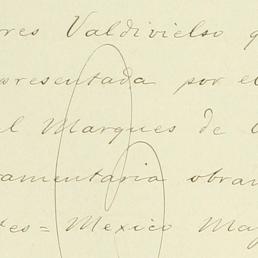 res Valdivielso q
resentada por el
l Marques de l
amentaria obran
es = Mexico Ma